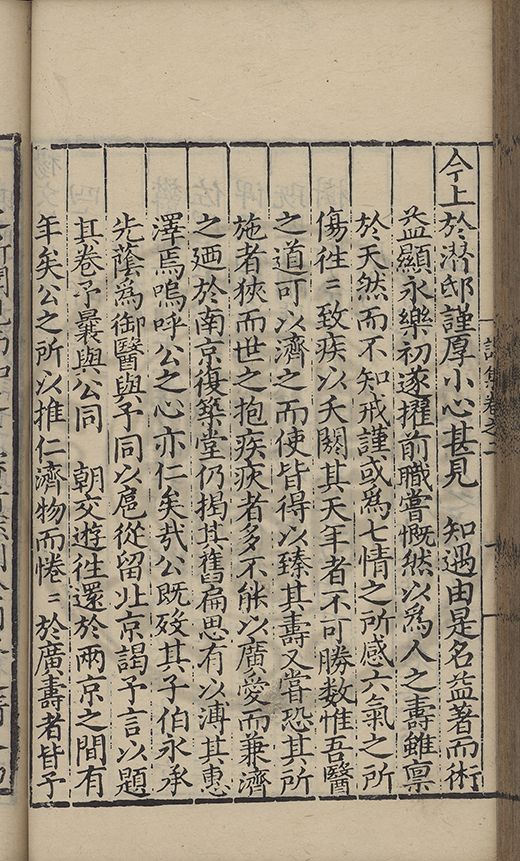 今上於濳邸謹厚小心甚見　知遇由是名益著而術
益顯永樂初遂擢前職嘗慨然以爲人之壽雖禀
於天然而不知戒謹或爲七情之所感六氣之所
傷徃〻致疾以夭閼其天年者不可勝數惟吾醫
之道可以濟之而使皆得以臻其壽又嘗恐其所
施者狹而世之抱疾疢者多不能以廣愛而兼濟
之廼於南京復築堂仍揭其舊扁思有以溥其惠
澤焉嗚呼公之心亦仁矣㢤公既歿其子伯永承
先蔭爲御醫與予同以扈從留北京謁予言以題
其卷予曩與公同　朝交遊徃還於兩京之間有
年矣公之所以推仁濟物而惓〻於廣壽者皆予